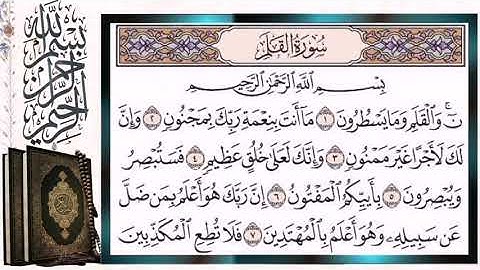 سُورَةُ القَلَمِ
بِسْمِ اللَّهِ الرَّحْمَٰنِ الرَّحِيمِ
نٓ ۚ وَٱلْقَلَمِ وَمَا يَسْطُرُونَ ١ مَآ أَنتَ بِنِعْمَةِ رَبِّكَ بِمَجْنُونٍ ٢ وَإِنَّ
لَكَ لَأَجْرًا غَيْرَ مَمْنُونٍ ٣ وَإِنَّكَ لَعَلَىٰ خُلُقٍ عَظِيمٍ ٤ فَسَتُبْصِرُ
وَيُبْصِرُونَ ٥ بِأَييِّكُمُ ٱلْمَفْتُونُ ٦ إِنَّ رَبَّكَ هُوَ أَعْلَمُ بِمَن ضَلَّ
عَن سَبِيلِهِۦ وَهُوَ أَعْلَمُ بِٱلْمُهْتَدِينَ ٧ فَلَا تُطِعِ ٱلْمُكَذِّبِينَ
بسم الله الرحمن الرحيم